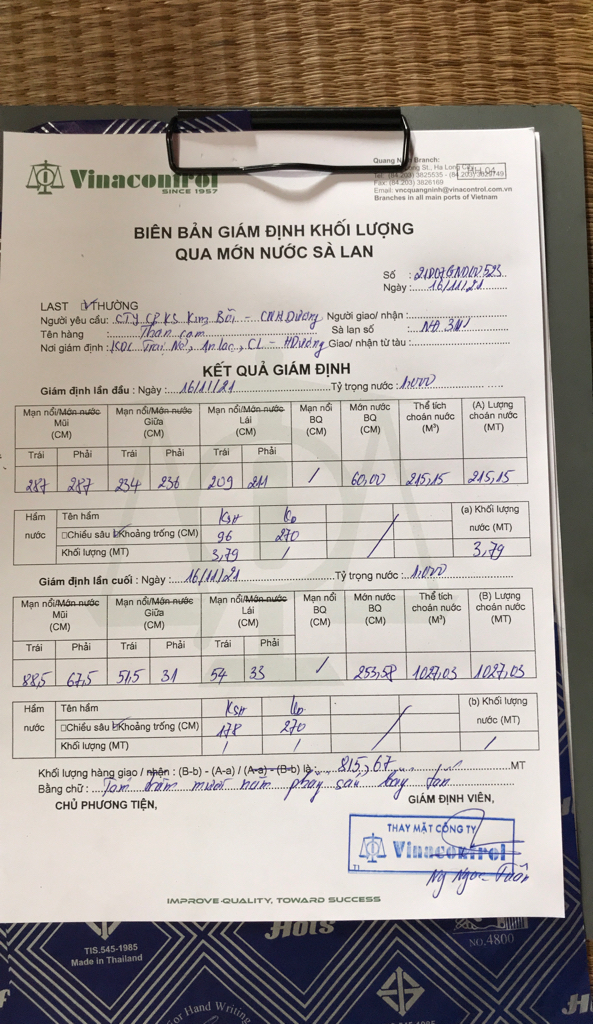 Vinacontrol
SINCE 1957
Quang Ninh Branch:
MH 04
Fax: (84.203) 3826169
Email: vncquangninh@vinacontrol.com.vn
Branches in all main ports of Vietnam
BIÊN BẢN GIÁM ĐỊNH KHỐI LƯỢNG
QUA MỚN NƯỚC SÀ LAN
Số :
Ngày : 16/11/21
LAST THƯỜNG
Người yêu cầu: CTY CPKS Kim Bôi - CN H.Dương Người giao/ nhận :
Tên hàng : Than cám Sà lan số : NĐ 3111
Nơi giám định : An lạc, CL - H.Dương Giao/ nhận từ tàu :
KẾT QUẢ GIÁM ĐỊNH
Giám định lần đầu : Ngày : 16/11/21 Tỷ trọng nước : 1.000
Mạn nổi/Món nước Mũi (CM) Mạn nổi/Món nước Giữa (CM) Mạn nổi/Món nước Lái (CM) Mạn nổi BQ (CM) Món nước BQ (CM) Thể tích choán nước (M³) (A) Lượng choán nước (MT)
Trái Phải Trái Phải Trái Phải
287 287 234 236 209 211 / 60,00 215,15 215,15
Hầm nước Tên hầm KSH (a) Khối lượng nước (MT)
Chiều sâu Khoảng trống (CM) 96 270
Khối lượng (MT) 3,79 / 3,79
Giám định lần cuối : Ngày : 16/11/21 Tỷ trọng nước : 1.000
Mạn nổi/Món nước Mũi (CM) Mạn nổi/Món nước Giữa (CM) Mạn nổi/Món nước Lái (CM) Mạn nổi BQ (CM) Món nước BQ (CM) Thể tích choán nước (M³) (B) Lượng choán nước (MT)
Trái Phải Trái Phải Trái Phải
88,5 67,5 51,5 31 54 33 / 253,58 1027,03 1027,03
Hầm nước Tên hầm KSH (b) Khối lượng nước (MT)
Chiều sâu Khoảng trống (CM) 178 270
Khối lượng (MT) / / /
Khối lượng hàng giao / nhận : (B-b) - (A-a) / (A-a) - (B-b) là : 815,67 MT
Bằng chữ : Tám trăm mười năm phảy sáu bảy tấn
CHỦ PHƯƠNG TIỆN, GIÁM ĐỊNH VIÊN,
THAY MẶT CÔNG TY
Vinacontrol
Ng Ngọc Tuấn
IMPROVE QUALITY, TOWARD SUCCESS
Hots
TIS.545-1985
Made in Thailand
NO.4800
or Hand Writing